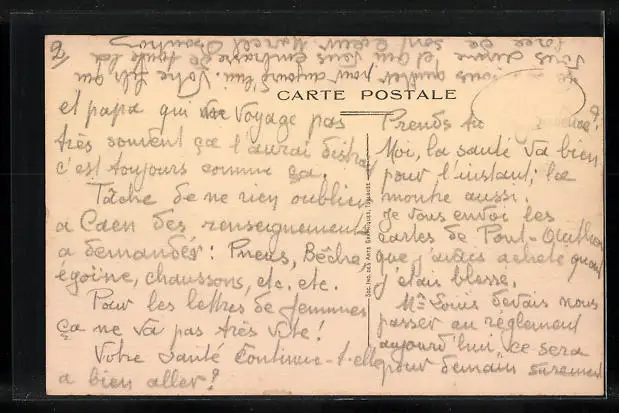 CARTE POSTALE
et papa qui ne voyage pas
très souvent ça l'aurai distrai
c'est toujours comme ça.
Tâche de ne rien oublier
a Caen des renseignements
a demander : Pneus, Bêche,
égoïne, chaussons, etc. etc.
Pour les lettres de femmes
ça ne va pas très vite!
Votre santé continue-t-elle
a bien aller?
Prends tu
Moi, la santé va bien
pour l'instant; la
montre aussi.
Je vous envoi les
cartes de Pont-
que j'avais acheté quand
j'étais blessé.
Mr Louis devais nous
passer au réglement
aujourd'hui, ce sera
pour demain surement
vous quitter pour aujourd'hui. Votre fils qui
vous aime et qui vous embrasse de toute la
force de son cœur Marcel